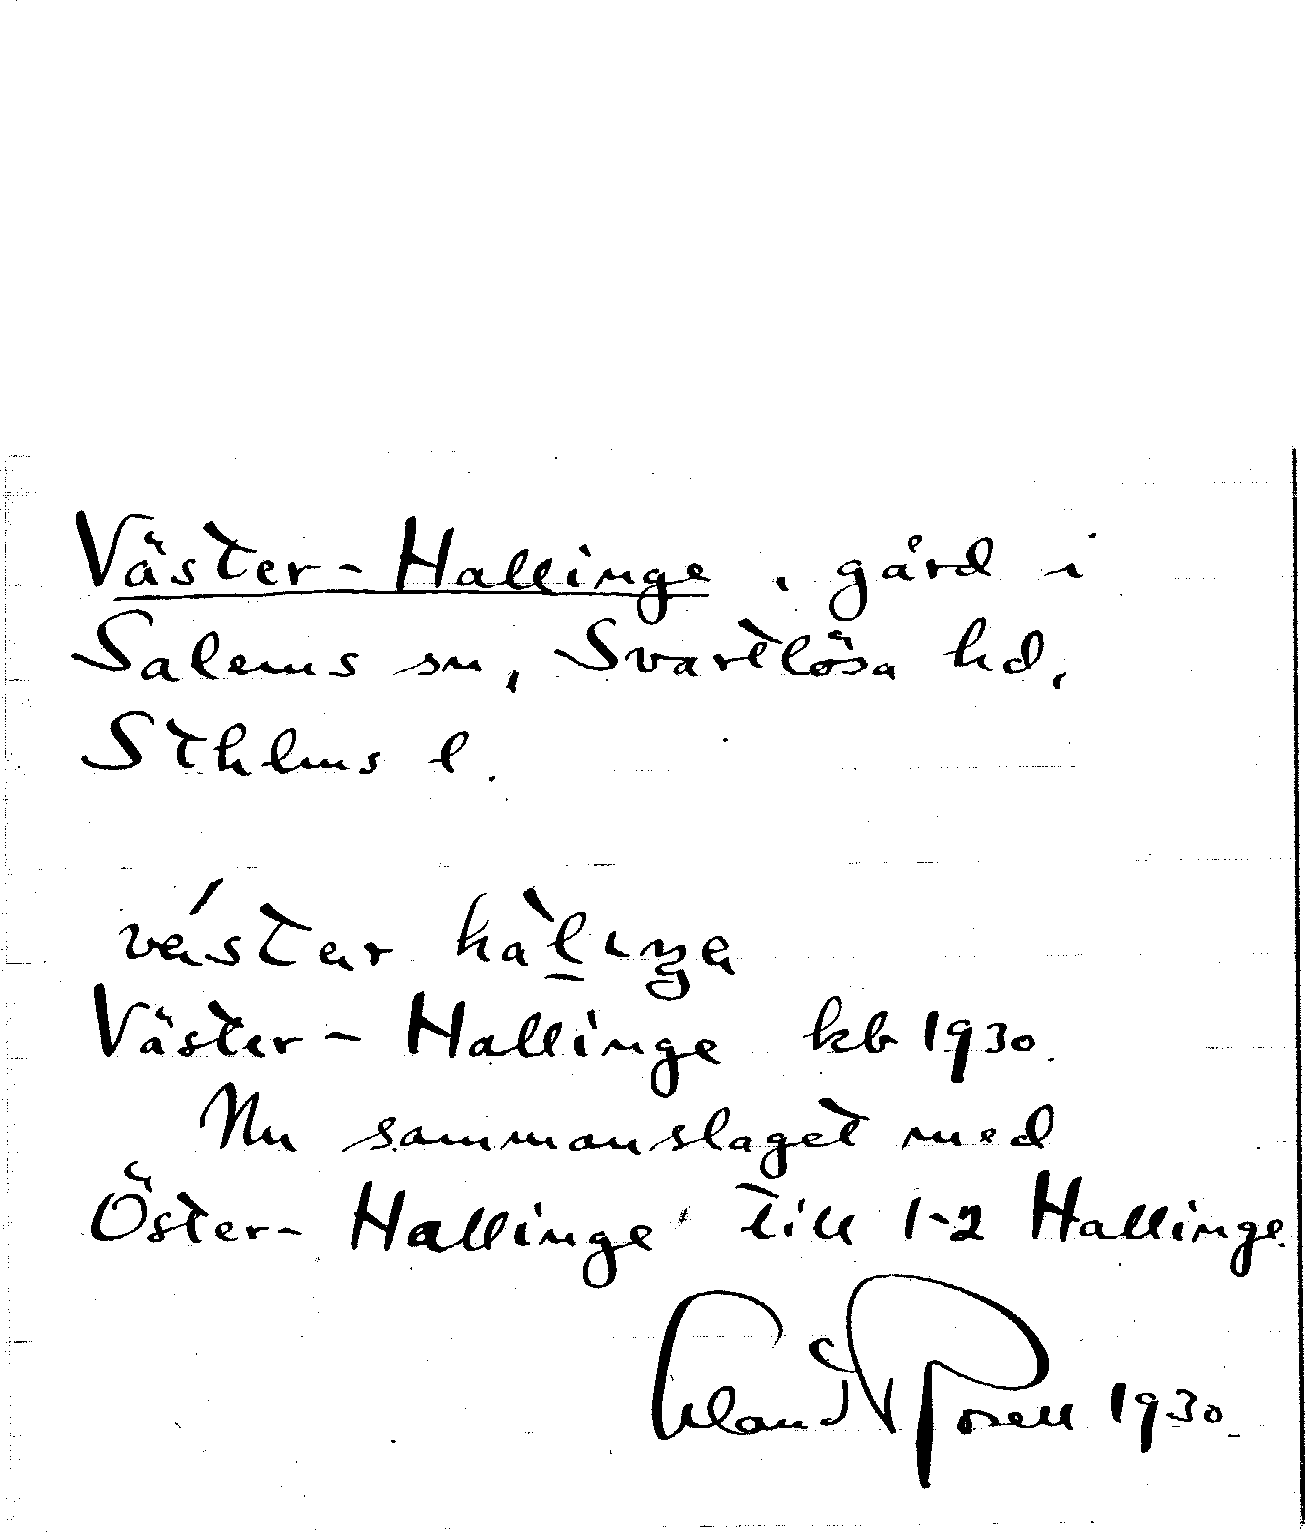 Väster-Hallinge, gård i
Salems sn, Svartlösa hd,
Sthlms l.
Väster-Hallinge kb 1930.
Nu sammanslaget med
Öster-Hallinge till 1-2 Hallinge.
Erland Rosell 1930.